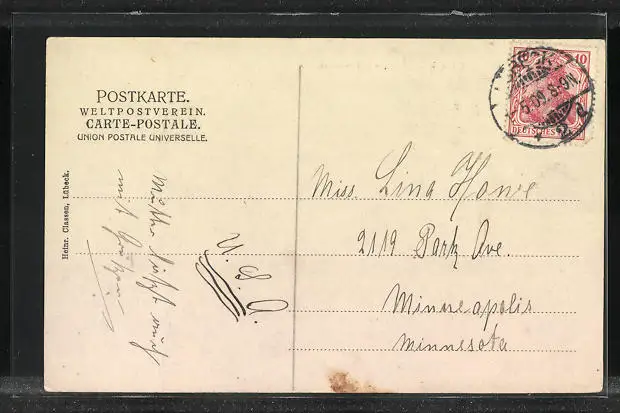 POSTKARTE.
WELTPOSTVEREIN.
CARTE-POSTALE.
UNION POSTALE UNIVERSELLE.
Heinr. Classen, Lübeck.
10
DEUTSCHES
Miss. Lina Howe
2119 Park Ave.
Minneapolis
Minnesota
U. S. A.
mit